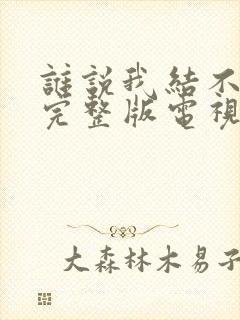 誰說我結不
完整版電視
大森林木易子